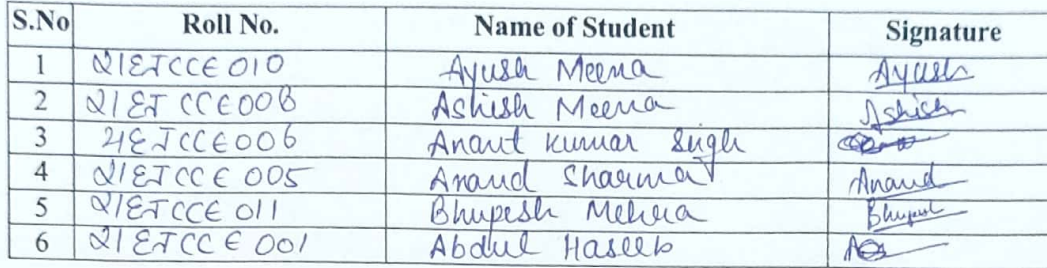 S.No Roll No. Name of Student Signature
1 21EJCCE010 Ayush Meena Ayush
2 21EJCCE008 Ashish Meena Ashish
3 21EJCCE006 Anant Kumar Singh
4 21EJCCE005 Anand Sharma Anand
5 21EJCCE011 Bhupesh Mehra Bhupesh
6 21EJCCE001 Abdul Haseeb